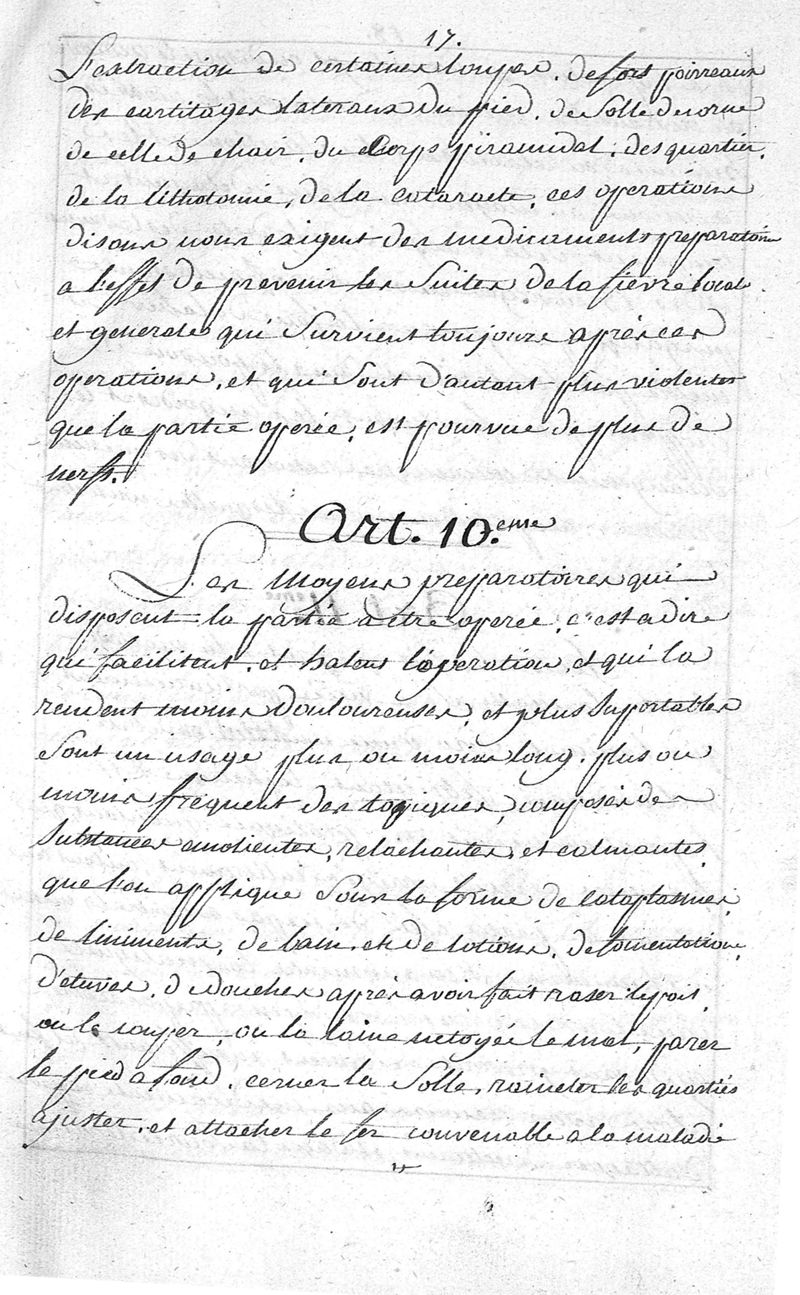 17.
L'extraction de certaines loupes, de fors poirreaux
des cartilages lateraux du pied, de Solle de corne
de celle de chair, du Corps piramidal, des quartier,
de la lithotomie, de la cataracte, ces operations
disons nous exigent des medicaments preparatoire
a l'effet de prevenir les Suites de la fievre locale
et generale qui Survient toujours après ces
operations, et qui Sont d'autant plus violentes
que la partie operée, est pourvue de plus de
nerfs.
Art. 10.eme
Les Moyens preparatoires qui
disposent la partie a etre operée, c'est a dire
qui facilitent, et hatent l'operation, et qui la
rendent moins douloureuses, et plus Suportables
Sont un usage plus ou moins long, plus ou
moins frequent des topiques, composés de
Substances emolientes, relachantes, et calmantes,
que l'on applique Sous la forme de cataplasmes,
de liniments, de bain, et de lotions, de fomentations,
d'etuves, de douches après avoir fait raser le poil,
ou le couper, ou la laine netoyée le mal, parer
le pied a fond, cerner la Solle, raineter les quartiés
ajuster, et attacher le fer convenable a la maladie